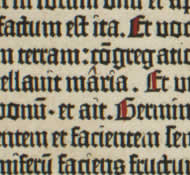 in locum unum et ap
factum est ita. Et uo
m terram: cōgregatio
ellauit maria. Et ui
bonū· et ait. Germin
entem et facientem se
miferū faciens fructu